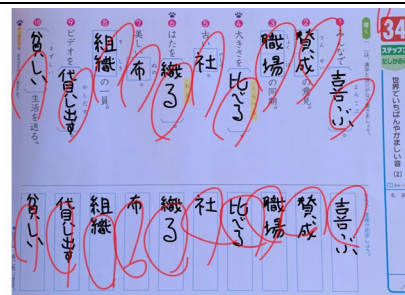 34
ステップ
たしかめ
世界でいちばんやかましい音(2)
書く
❶みんなで喜ぶ。
❷賛成の意見。
❸職場の同期。
❹大きさを比べる。
❺古い社。
❻はたを織る。
❼美しい布。
❽組織の一員。
❾ビデオを貸し出す。
❿貧しい生活を送る。
喜ぶ
賛成
職場
比べる
社
織る
布
組織
貸し出す
貧しい